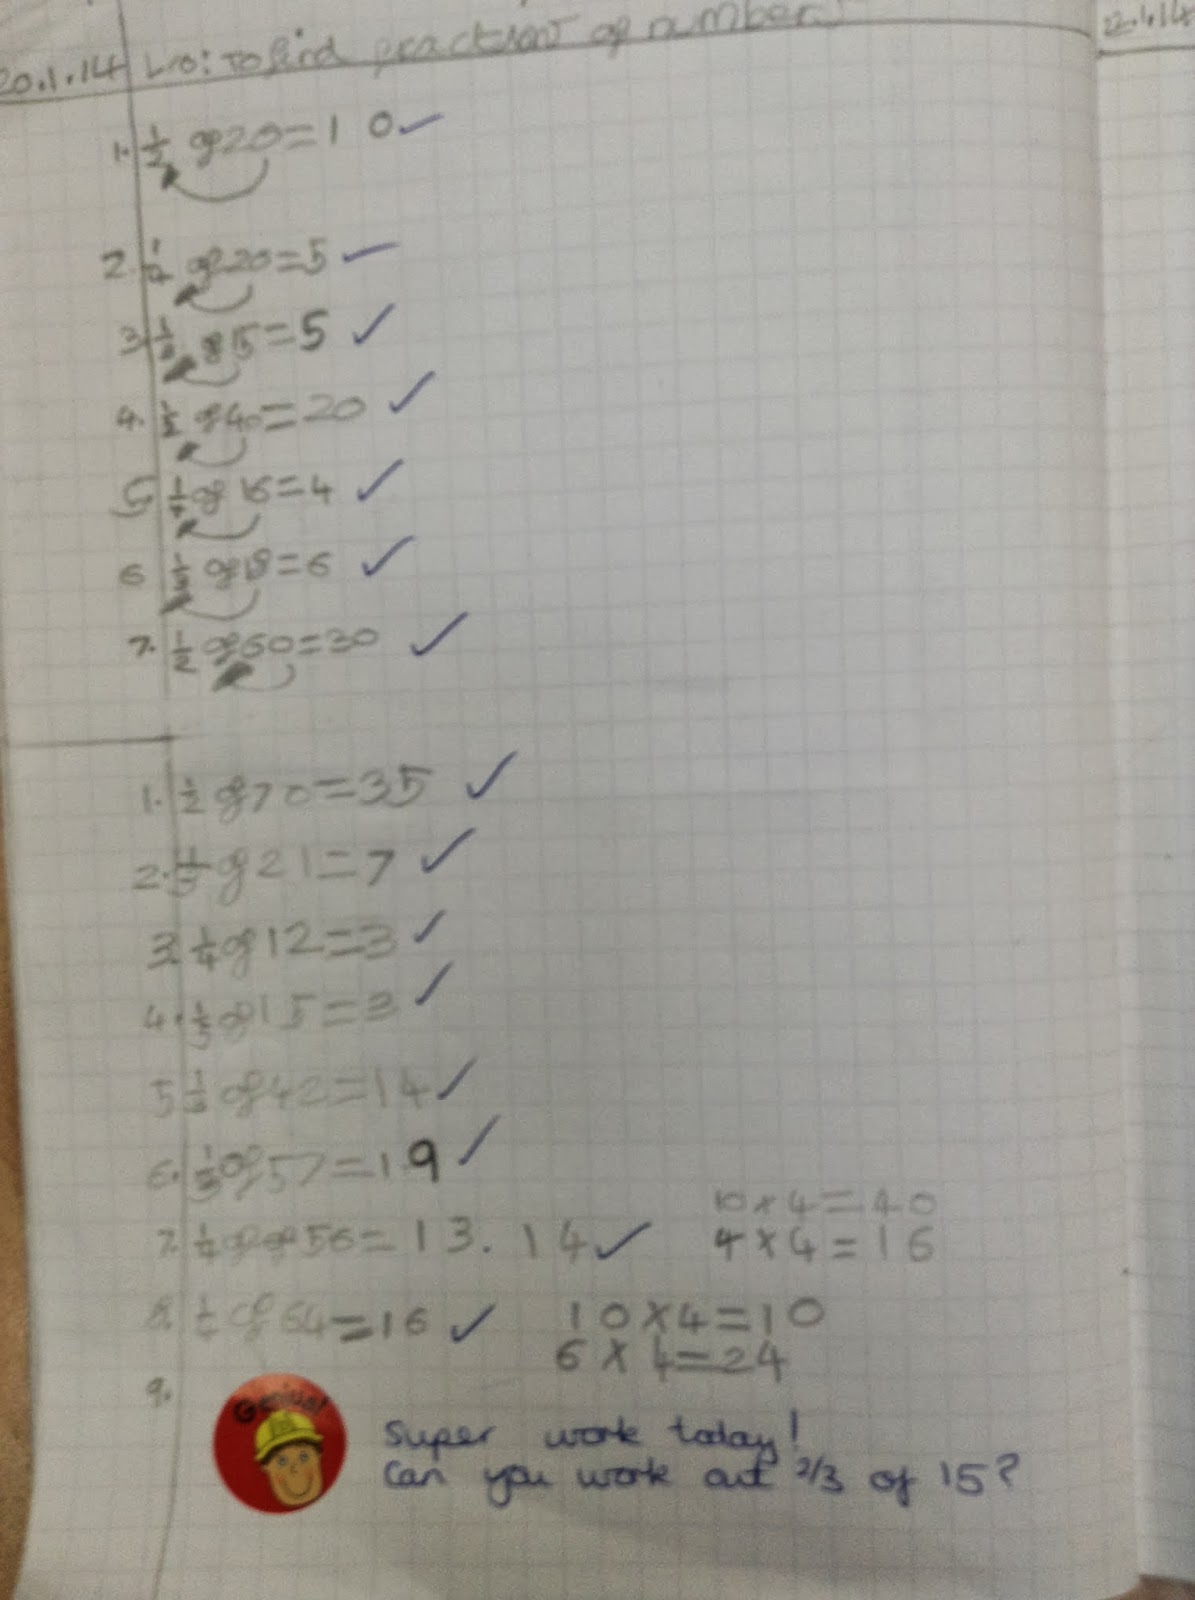 20.1.14 L.O: To find fractions of number.
22.1.14
1. 1/2 of 20 = 10 ✓
2. 1/4 of 20 = 5 ✓
3. 1/3 of 15 = 5 ✓
4. 1/2 of 40 = 20 ✓
5 1/4 of 16 = 4 ✓
6 1/3 of 18 = 6 ✓
7. 1/2 of 60 = 30 ✓
1. 1/2 of 70 = 35 ✓
2. 1/3 of 21 = 7 ✓
3. 1/4 of 12 = 3 ✓
4. 1/5 of 15 = 3 ✓
5 1/3 of 42 = 14 ✓
6. 1/3 of 57 = 19 ✓
7. 1/4 of of 56 = 13. 14 ✓
10 x 4 = 40
4 x 4 = 16
8. 1/4 of 64 = 16 ✓
10 x 4 = 10
6 x 4 = 24
9.
Genius!
Super work today!
Can you work out 2/3 of 15?